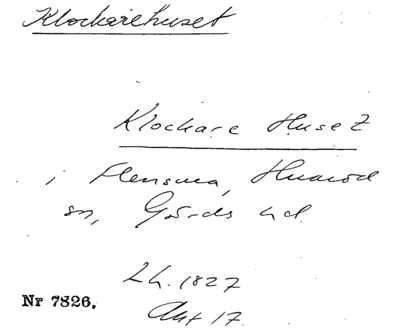 Klockarehuset
Klockare Huset
i Flensma, Huaröd
sn, Gärds hd.
LH. 1827
Akt 17.
Nr 7826.